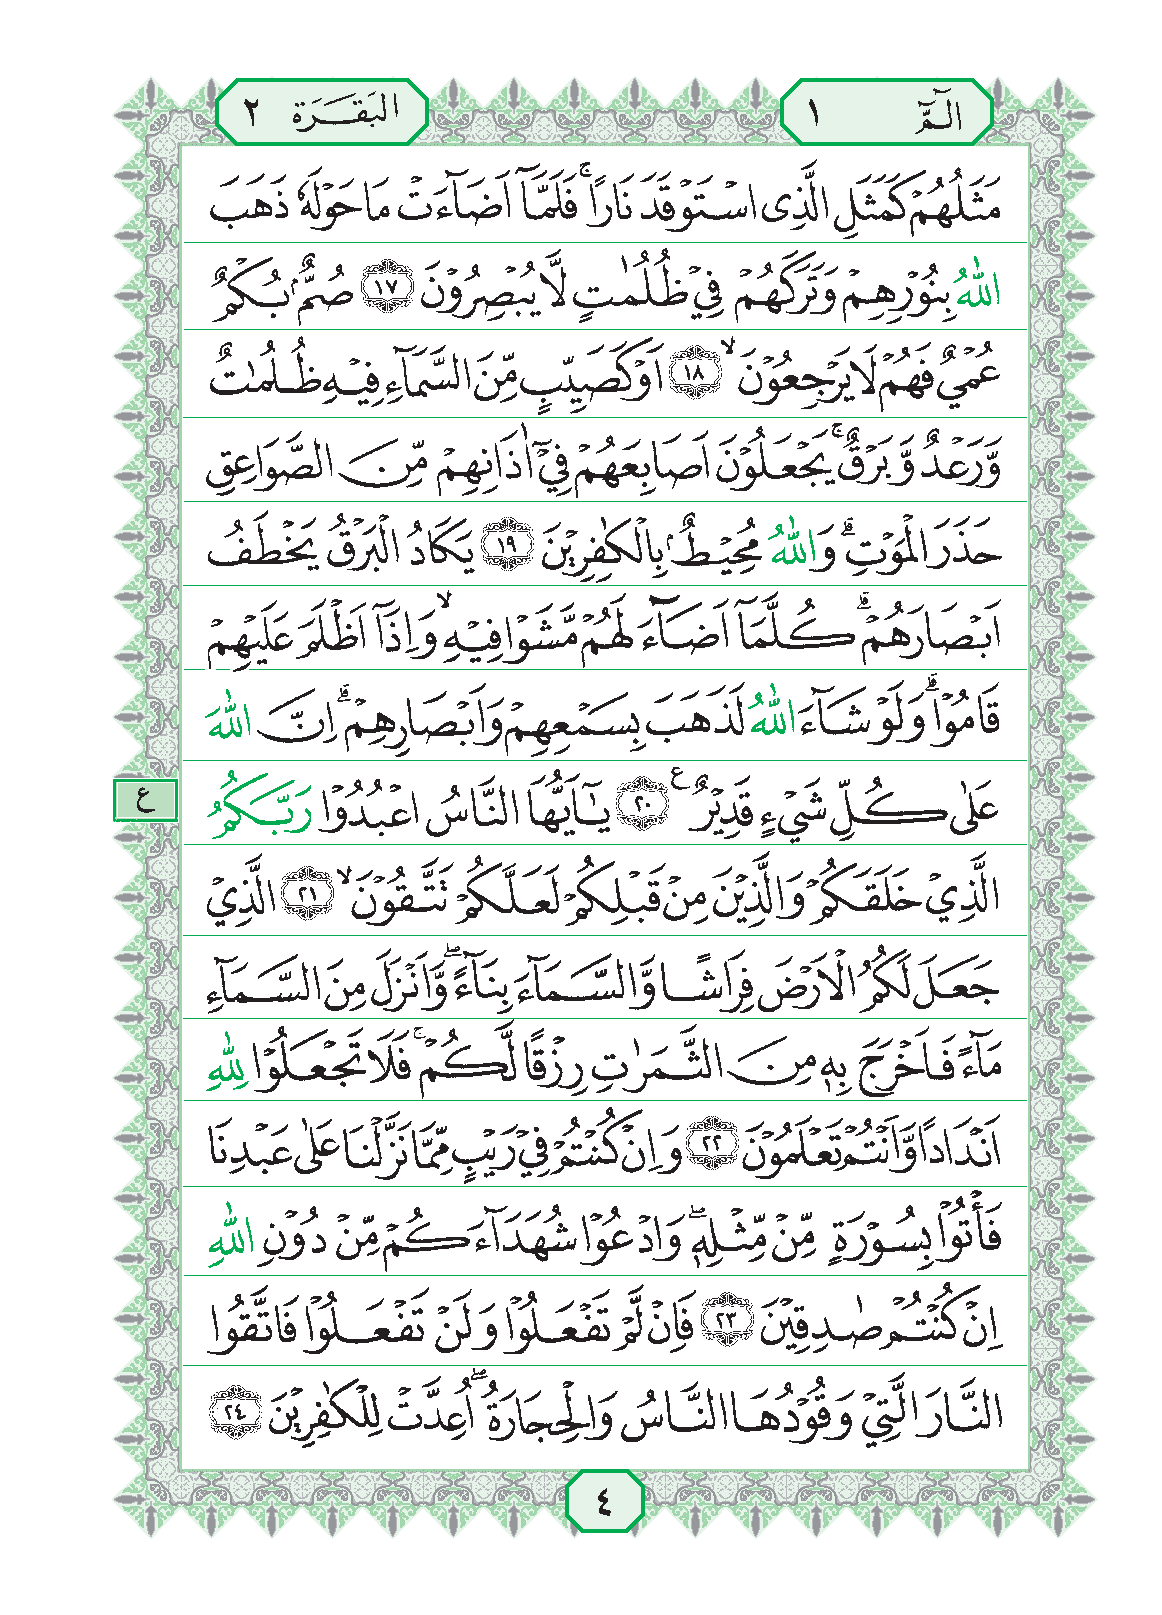 الٓمّٓ ١
البَقَرَة ٢
مَثَلُهُمْ كَمَثَلِ الَّذِى اسْتَوْقَدَ نَارًا ۚ فَلَمَّآ اَضَآءَتْ مَا حَوْلَهٗ ذَهَبَ
اللّٰهُ بِنُوْرِهِمْ وَتَرَكَهُمْ فِيْ ظُلُمٰتٍ لَّا يُبْصِرُوْنَ ١٧ صُمٌّۢ بُكْمٌ
عُمْيٌ فَهُمْ لَا يَرْجِعُوْنَ ۙ ١٨ اَوْ كَصَيِّبٍ مِّنَ السَّمَآءِ فِيْهِ ظُلُمٰتٌ
وَّرَعْدٌ وَّبَرْقٌ ۚ يَجْعَلُوْنَ اَصَابِعَهُمْ فِيْٓ اٰذَانِهِمْ مِّنَ الصَّوَاعِقِ
حَذَرَ الْمَوْتِ ؕ وَاللّٰهُ مُحِيْطٌۢ بِالْكٰفِرِيْنَ ١٩ يَكَادُ الْبَرْقُ يَخْطَفُ
اَبْصَارَهُمْ ؕ كُلَّمَآ اَضَآءَ لَهُمْ مَّشَوْا فِيْهِ ۙ وَاِذَآ اَظْلَمَ عَلَيْهِمْ
قَامُوْا ؕ وَلَوْ شَآءَ اللّٰهُ لَذَهَبَ بِسَمْعِهِمْ وَاَبْصَارِهِمْ ؕ اِنَّ اللّٰهَ
عَلٰى كُلِّ شَيْءٍ قَدِيْرٌ ع ٢٠ يٰٓاَيُّهَا النَّاسُ اعْبُدُوْا رَبَّكُمُ
ع
الَّذِيْ خَلَقَكُمْ وَالَّذِيْنَ مِنْ قَبْلِكُمْ لَعَلَّكُمْ تَتَّقُوْنَ ۙ ٢١ الَّذِيْ
جَعَلَ لَكُمُ الْاَرْضَ فِرَاشًا وَّالسَّمَآءَ بِنَآءً ۖ وَّاَنْزَلَ مِنَ السَّمَآءِ
مَآءً فَاَخْرَجَ بِهٖ مِنَ الثَّمَرٰتِ رِزْقًا لَّكُمْ ۚ فَلَا تَجْعَلُوْا لِلّٰهِ
اَنْدَادًا وَّاَنْتُمْ تَعْلَمُوْنَ ٢٢ وَاِنْ كُنْتُمْ فِيْ رَيْبٍ مِّمَّا نَزَّلْنَا عَلٰى عَبْدِنَا
فَأْتُوْا بِسُوْرَةٍ مِّنْ مِّثْلِهٖ ۖ وَادْعُوْا شُهَدَآءَكُمْ مِّنْ دُوْنِ اللّٰهِ
اِنْ كُنْتُمْ صٰدِقِيْنَ ٢٣ فَاِنْ لَّمْ تَفْعَلُوْا وَلَنْ تَفْعَلُوْا فَاتَّقُوا
النَّارَ الَّتِيْ وَقُوْدُهَا النَّاسُ وَالْحِجَارَةُ ۖ اُعِدَّتْ لِلْكٰفِرِيْنَ ٢٤
٤